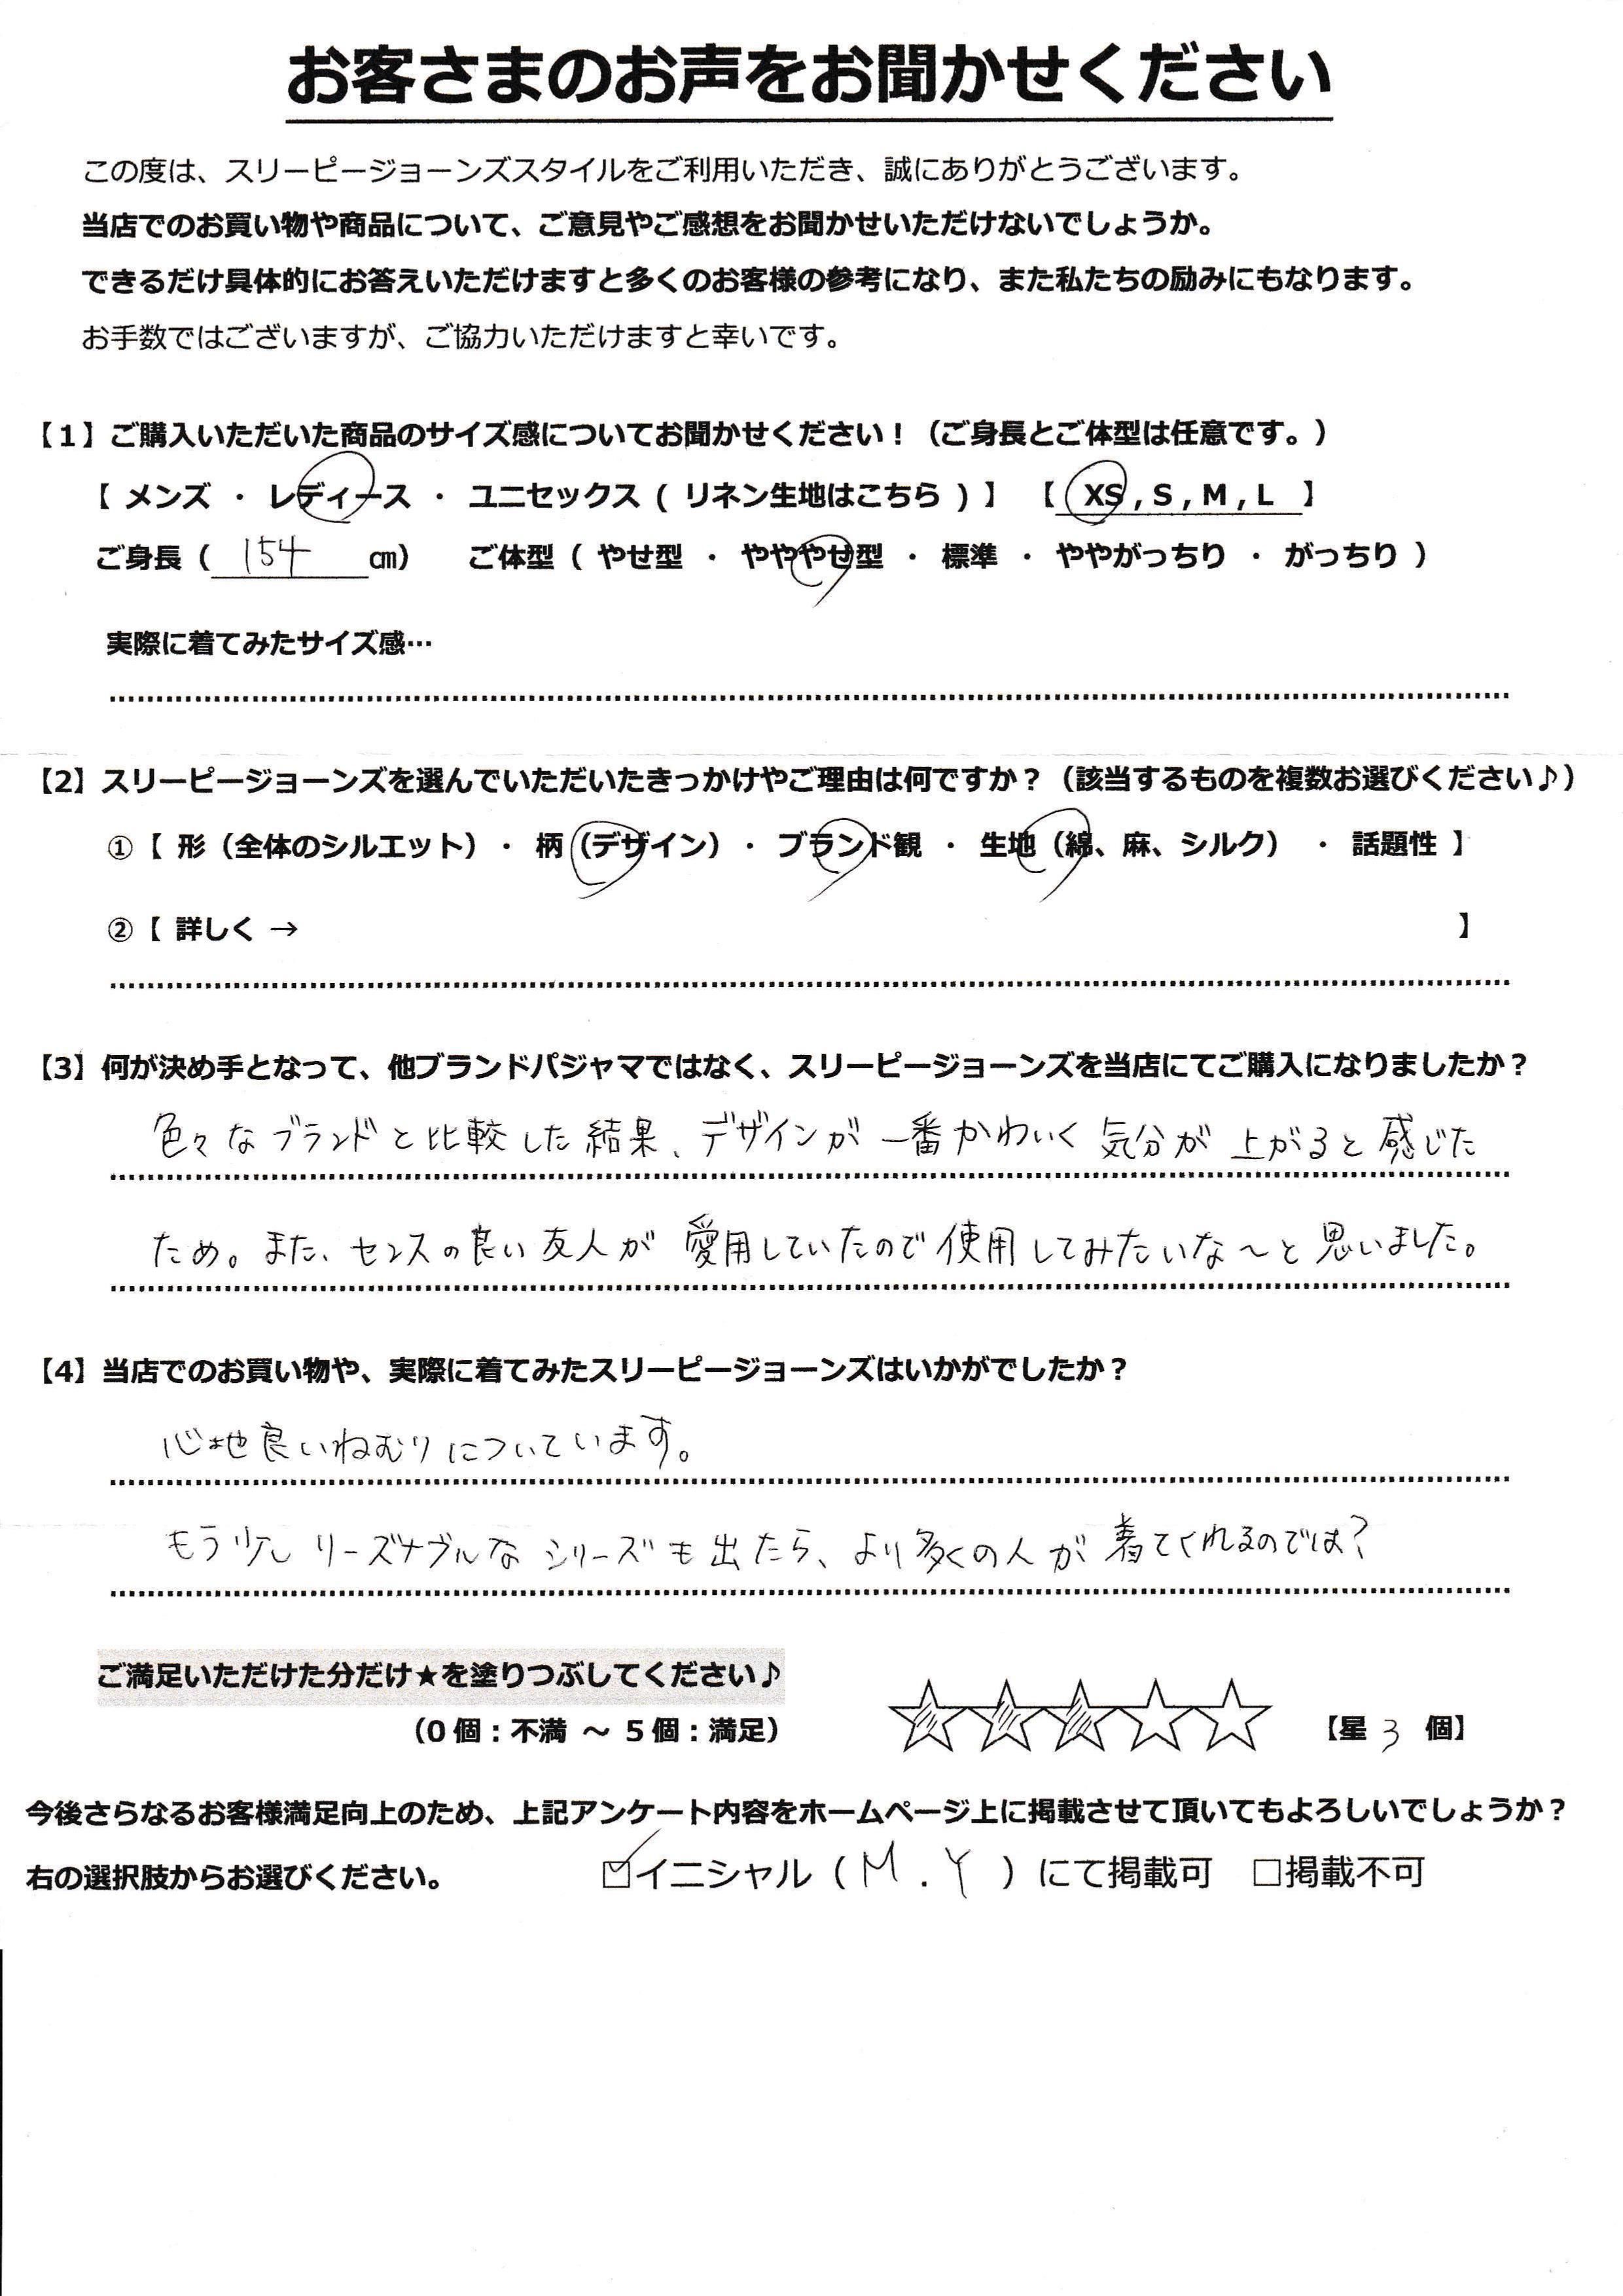 お客さまのお声をお聞かせください
この度は、スリーピージョーンズスタイルをご利用いただき、誠にありがとうございます。
当店でのお買い物や商品について、ご意見やご感想をお聞かせいただけないでしょうか。
できるだけ具体的にお答えいただけますと多くのお客様の参考になり、また私たちの励みにもなります。
お手数ではございますが、ご協力いただけますと幸いです。
【1】ご購入いただいた商品のサイズ感についてお聞かせください！（ご身長とご体型は任意です。）
【 メンズ ・ レディース ・ ユニセックス ( リネン生地はこちら ) 】 【 XS , S , M , L 】
ご身長（ 154 ㎝） ご体型（ やせ型 ・ ややややせ型 ・ 標準 ・ ややがっちり ・ がっちり ）
実際に着てみたサイズ感…
【2】スリーピージョーンズを選んでいただいたきっかけやご理由は何ですか？（該当するものを複数お選びください♪）
①【 形（全体のシルエット）・ 柄（デザイン）・ ブランド観 ・ 生地（綿、麻、シルク） ・ 話題性 】
②【 詳しく → 】
【3】何が決め手となって、他ブランドパジャマではなく、スリーピージョーンズを当店にてご購入になりましたか？
色々なブランドと比較した結果、デザインが一番かわいく気分が上がると感じた
ため。また、センスの良い友人が愛用していたので使用してみたいな～と思いました。
【4】当店でのお買い物や、実際に着てみたスリーピージョーンズはいかがでしたか？
心地良いねむりについています。
もう少しリーズナブルなシリーズも出たら、より多くの人が着てくれるのでは？
ご満足いただけた分だけ★を塗りつぶしてください♪
（0 個：不満 ～ 5 個：満足） 【星 3 個】
今後さらなるお客様満足向上のため、上記アンケート内容をホームページ上に掲載させて頂いてもよろしいでしょうか？
右の選択肢からお選びください。 ☑イニシャル（ M . Y ）にて掲載可 □掲載不可